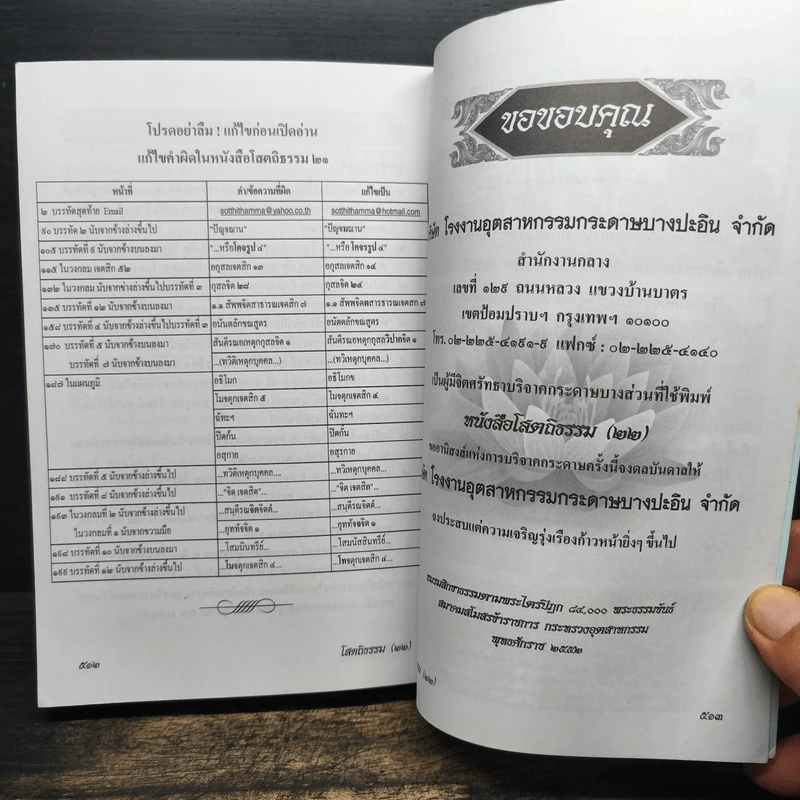 โปรดอย่าลืม ! แก้ไขก่อนเปิดอ่าน
แก้ไขคำผิดในหนังสือโสตถิธรรม ๒๑
หน้าที่ คำ/ข้อความที่ผิด แก้ไขเป็น
๒ บรรทัดสุดท้าย Email sotthithamma@yahoo.co.th sotthithamma@hotmail.com
๙๐ บรรทัด ๒ นับจากข้างล่างขึ้นไป "ปัญจฌาน" "ปัญจฌาน"
๑๐๕ บรรทัดที่ ๙ นับจากข้างบนลงมา "...หรือโคจรรูป ๔" "...หรือ โคจรรูป ๔"
๑๑๕ ในวงกลม เจตสิก ๕๒ อกุสลเจตสิก ๑๓ อกุสลเจตสิก ๑๔
๑๓๒ ในวงกลม นับจากข่างล่างขึ้นไปบรรทัดที่ ๓ กุสลจิต ๒๘ กุสลจิต ๒๑
๑๓๕ บรรทัดที่ ๑๒ นับจากข้างบนลงมา ๑.๑ สัพพจิตสาธารณเจตสิก ๗ ๑.๑ สัพพจิตตสาธารณเจตสิก ๗
๑๕๘ บรรทัดที่ ๔ นับจากข้างล่างขึ้นไปบรรทัดที่ ๓ อนัตตลักขณสูตร อนัตตลักขณสูตร
๑๗๐ บรรทัดที่ ๕ นับจากข้างบนลงมา สันตีรณอเหตุกกุสลจิต ๑ สันตีรณอเหตุกกุสลวิปากจิต ๑
บรรทัดที่ ๗ นับจากข้างบนลงมา ...(ทวิติเหตุกบุคคล...) ...(ทวิเหตุกบุคคล...)
๑๘๗ ในแผนภูมิ อธิโมก อธิโมกข
โมจตุกเจตสิก ๕ โมจตุกเจตสิก ๔
ฉัทะฯ ฉันทะฯ
ปีดกัน ปิดกั้น
อสุกาย อสุรกาย
๑๘๘ บรรทัดที่ ๕ นับจากข้างล่างขึ้นไป ...ทวิติเหตุกบุคคล.... ...ทวิเหตุกบุคคล...
๑๙๑ บรรทัดที่ ๘ นับจากข้างล่างขึ้นไป ..."จิต เจตสิต"... ..."จิต เจตสิก"...
๑๙๓ ในวงกลมที่ ๒ นับจากข้างล่างขึ้นไป
ในวงกลมที่ ๑ นับจากขวามือ ...อุททัจจิต ๑ ...อุทธัจจจิต ๑
๑๙๘ บรรทัดที่ ๑๐ นับจากข้างบนลงมา ...โสมนินทรีย์... ...โสมนัสสินทรีย์...
๑๙๙ บรรทัดที่ ๑๒ นับจากข้างล่างขึ้นไป ...โมจตุกเจตสิก ๔.... ...โทจตุกเจตสิก ๔...
๕๑๒ โสตถิธรรม (๒๒)
ขอขอบคุณ
โรงงานอุตสาหกรรมกระดาษบางปะอิน จำกัด
สำนักงานกลาง
เลขที่ ๑๒๙ ถนนหลวง แขวงบ้านบาตร
เขตป้อมปราบฯ กรุงเทพฯ ๑๐๑๐๐
โทร. ๐๒-๒๒๕-๔๑๙๑-๙ แฟกซ์ : ๐๒-๒๒๕-๔๑๔๐
เป็นผู้มีจิตศรัทธาบริจาคกระดาษบางส่วนที่ใช้พิมพ์
หนังสือโสตถิธรรม (๒๒)
ขออานิสงส์แห่งการบริจาคกระดาษครั้งนี้จงดลบันดาลให้
โรงงานอุตสาหกรรมกระดาษบางปะอิน จำกัด
จงประสบแต่ความเจริญรุ่งเรืองก้าวหน้ายิ่งๆ ขึ้นไป
ชมรมศึกษาธรรมตามพระไตรปิฎก ๘๔,๐๐๐ พระธรรมขันธ์
สมาคมสโมสรข้าราชการ กระทรวงอุตสาหกรรม
พุทธศักราช ๒๕๕๒
(๒๒)
๕๑๓